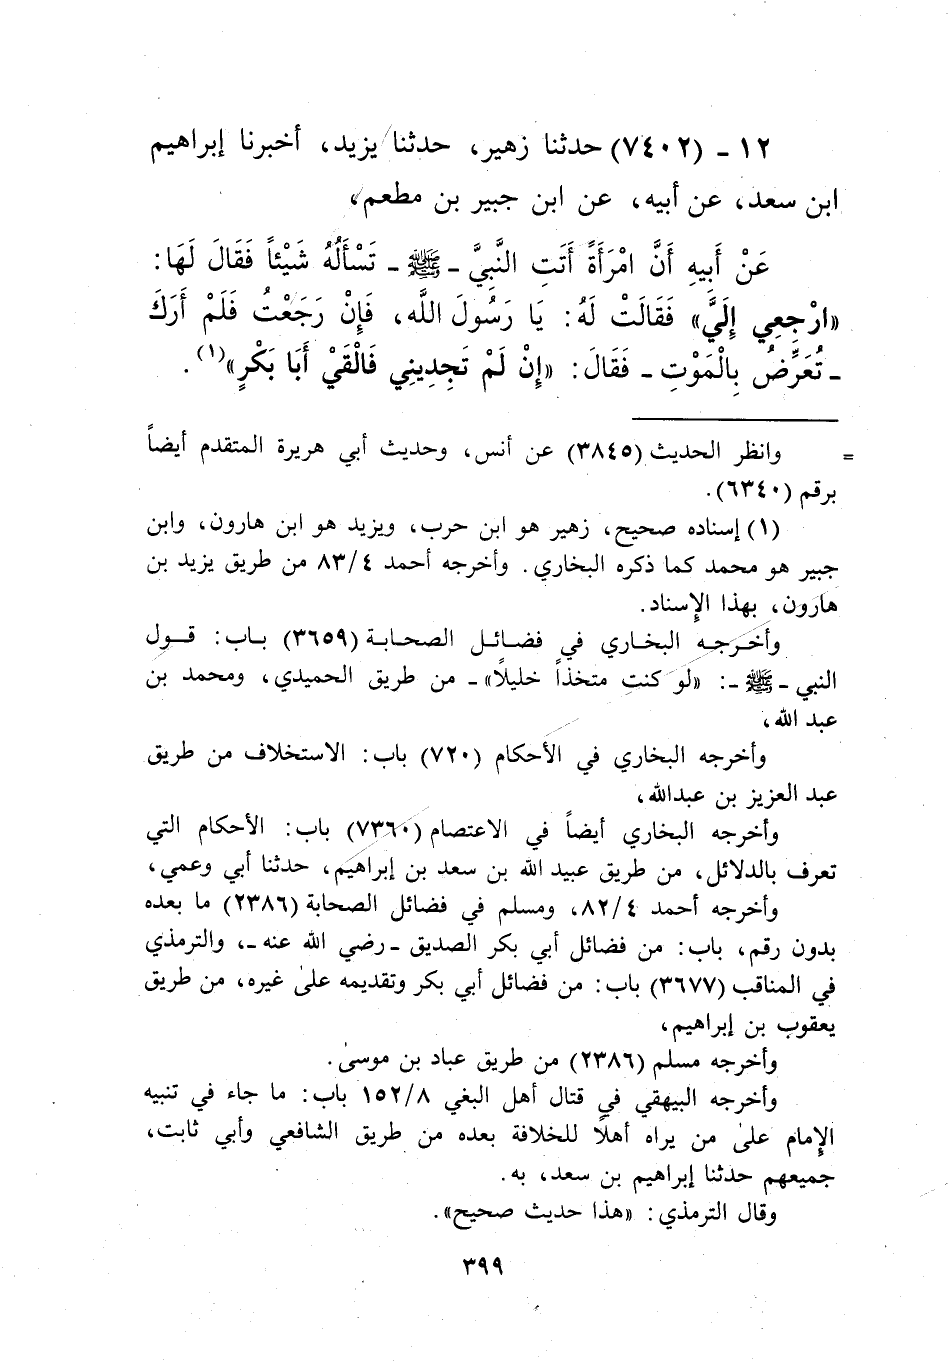 ١٢ ـ (٧٤٠٢) حدثنا زهير، حدثنا يزيد، أخبرنا إبراهيم
ابن سعد، عن أبيه، عن ابن جبير بن مطعم،
عَنْ أَبِيهِ أَنَّ امْرَأَةً أَتَتِ النَّبِيَّ ـ ﷺ ـ تَسْأَلُهُ شَيْئاً فَقَالَ لَهَا:
«ارْجِعِي إِلَيَّ» فَقَالَتْ لَهُ: يَا رَسُولَ اللَّه، فَإِنْ رَجَعْتُ فَلَمْ أَرَكَ
ـ تُعَرِّضُ بِالْمَوْتِ ـ فَقَالَ: «إِنْ لَمْ تَجِدِينِي فَالْقَيْ أَبَا بَكْرٍ»(١).
= وانظر الحديث (٣٨٤٥) عن أنس، وحديث أبي هريرة المتقدم أيضاً
برقم (٦٣٤٠).
(١) إسناده صحيح، زهير هو ابن حرب، ويزيد هو ابن هارون، وابن
جبير هو محمد كما ذكره البخاري. وأخرجه أحمد ٨٣/٤ من طريق يزيد بن
هارون، بهذا الإسناد.
وأخرجه البخاري في فضائل الصحابة (٣٦٥٩) باب: قول
النبي ـ ﷺ ـ: «لو كنت متخذاً خليلاً» ـ من طريق الحميدي، ومحمد بن
عبد الله،
وأخرجه البخاري في الأحكام (٧٢٠) باب: الاستخلاف من طريق
عبد العزيز بن عبدالله،
وأخرجه البخاري أيضاً في الاعتصام (٧٣٦٠) باب: الأحكام التي
تعرف بالدلائل، من طريق عبيد الله بن سعد بن إبراهيم، حدثنا أبي وعمي،
وأخرجه أحمد ٨٢/٤، ومسلم في فضائل الصحابة (٢٣٨٦) ما بعده
بدون رقم، باب: من فضائل أبي بكر الصديق ـ رضي الله عنه ـ، والترمذي
في المناقب (٣٦٧٧) باب: من فضائل أبي بكر وتقديمه علىٰ غيره، من طريق
يعقوب بن إبراهيم،
وأخرجه مسلم (٢٣٨٦) من طريق عباد بن موسىٰ.
وأخرجه البيهقي في قتال أهل البغي ١٥٢/٨ باب: ما جاء في تنبيه
الإمام علىٰ من يراه أهلاً للخلافة بعده من طريق الشافعي وأبي ثابت،
جميعهم حدثنا إبراهيم بن سعد، به.
وقال الترمذي: «هذا حديث صحيح».
٣٩٩